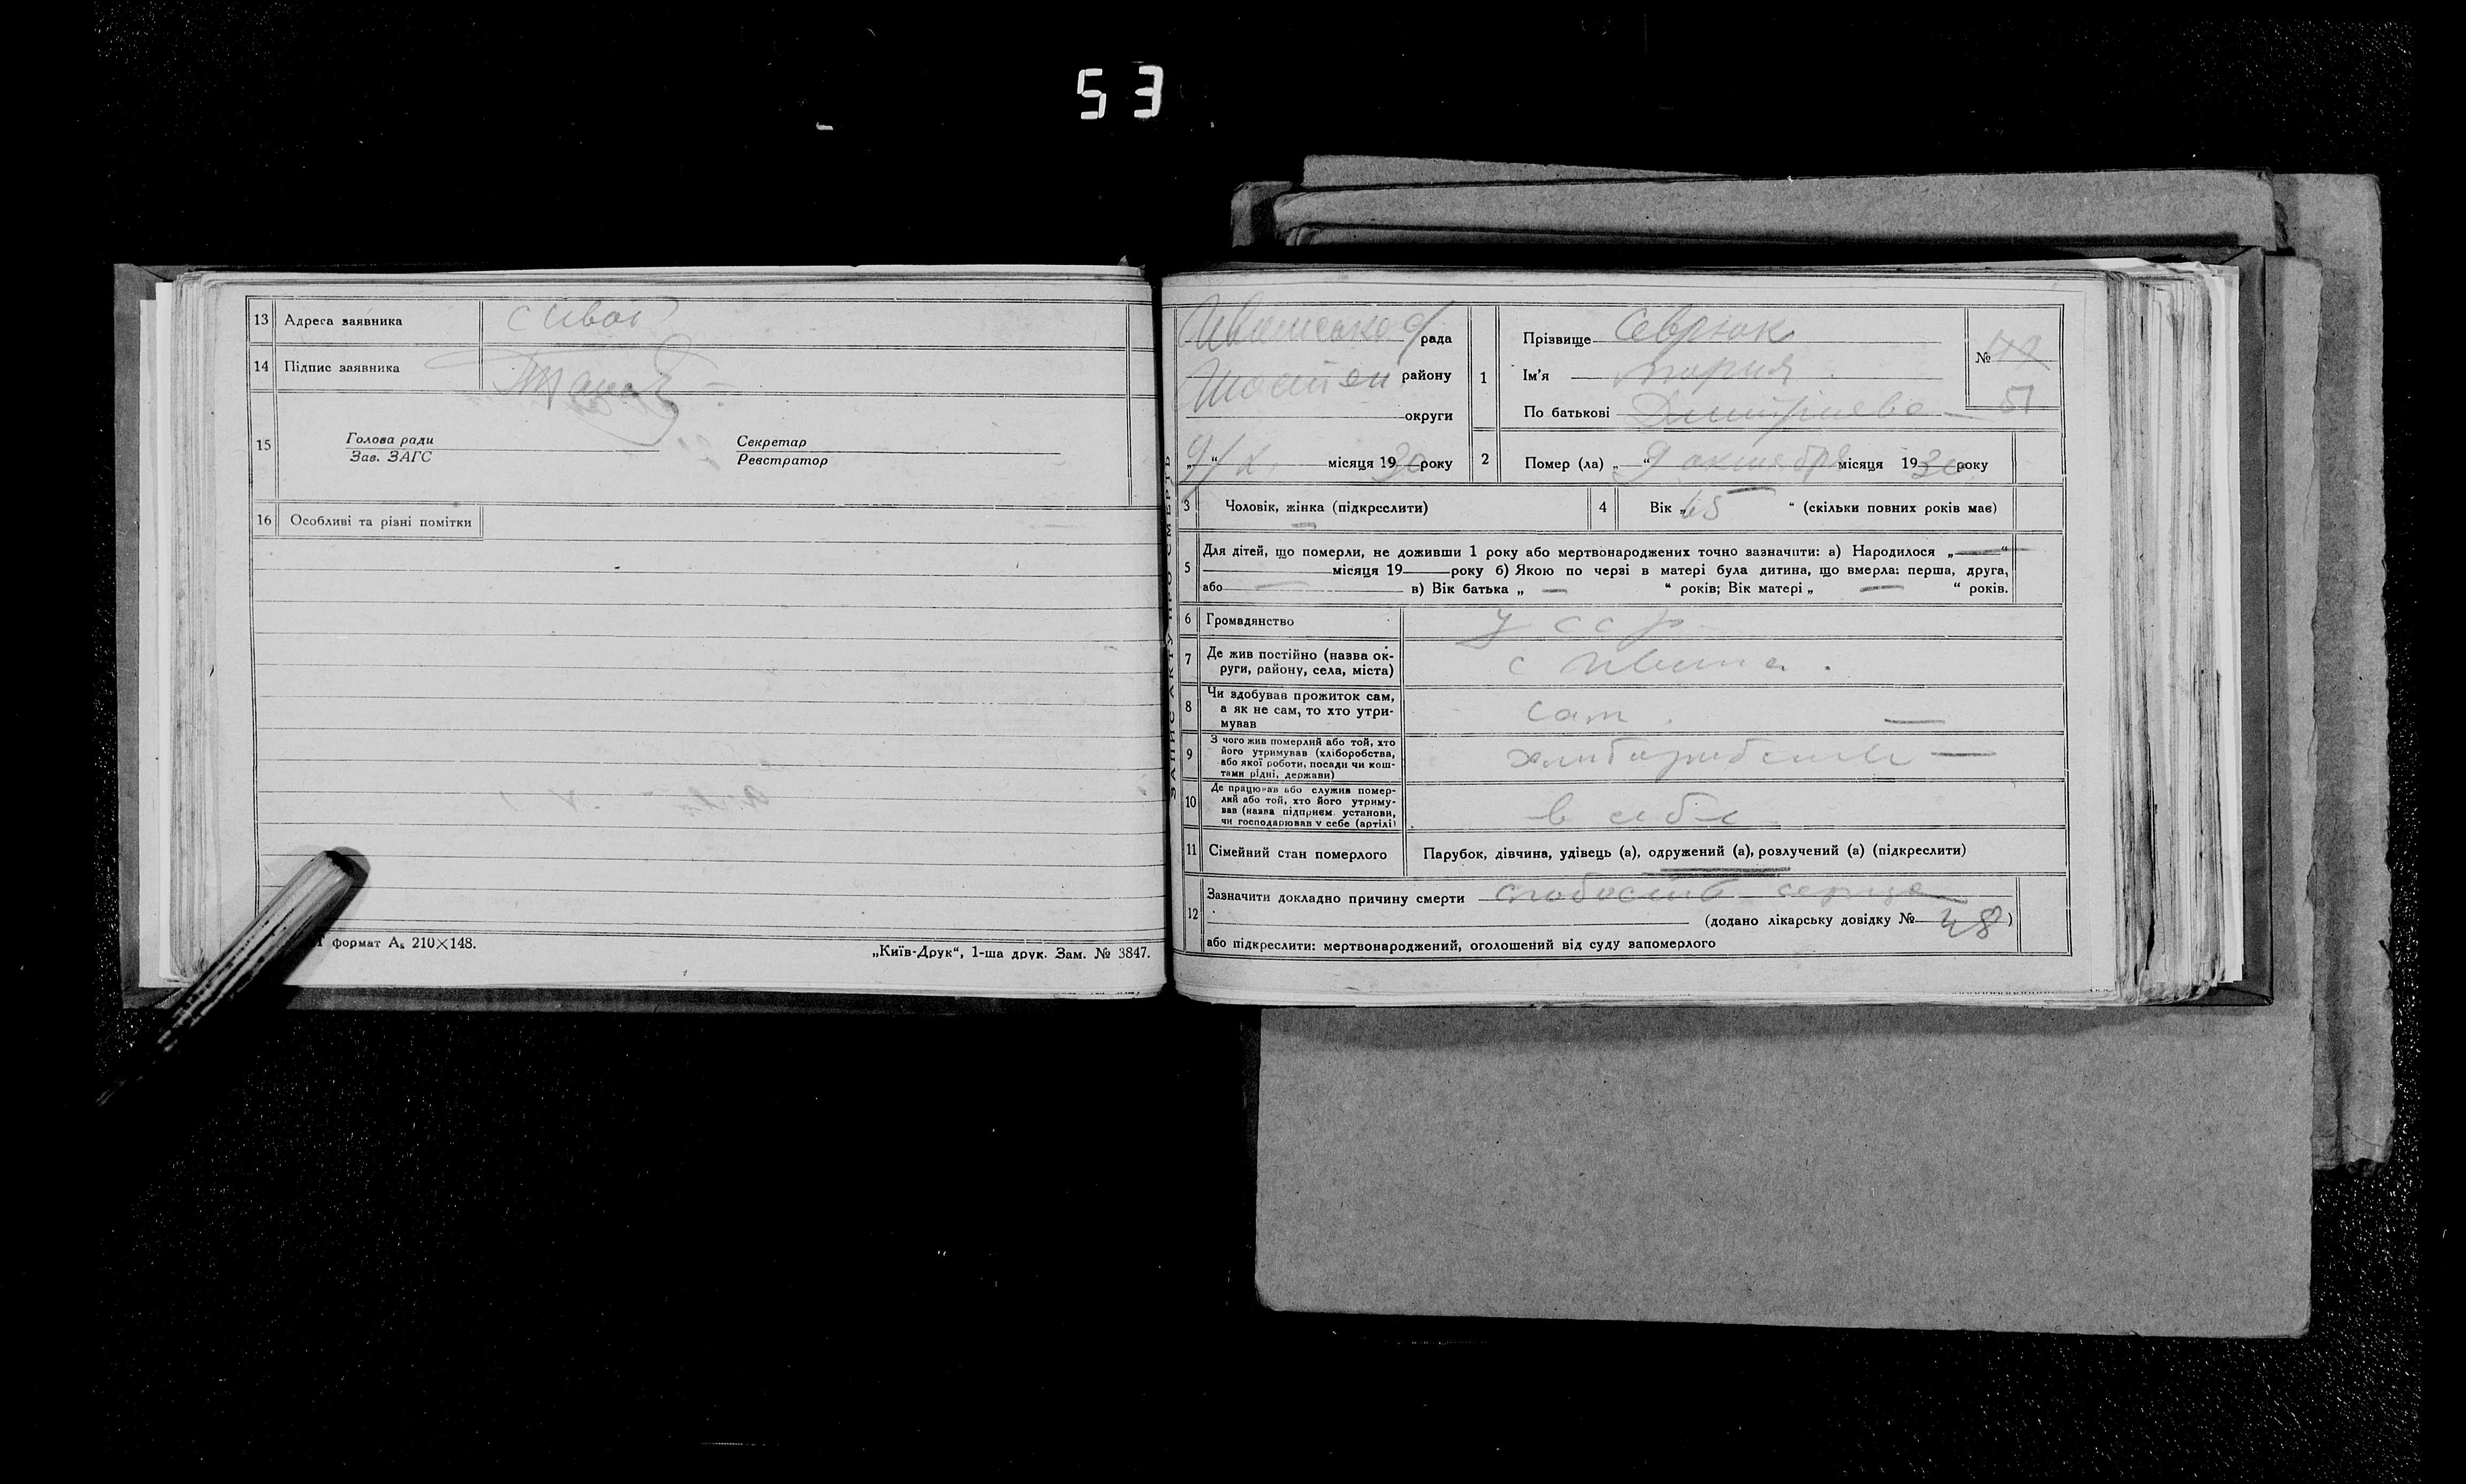 53
13 Адреса заявника
14 Підпис заявника
15 Голова ради
Зав. ЗАГС
Секретар
Реєстратор
16 Особливі та різні помітки
формат А₅ 210×148.
„Київ-Друк“, 1-ша друк. Зам. № 3847.
ЗАПИС АКТУ ПРО СМЕРТЬ
рада
району
округи
9/X місяця 1930 року
1 Прізвище Севрюк
Ім'я Мария
По батькові Дмитріева
№
51
2 Помер (ла) „ “ 9 октября місяця 1930 року
3 Чоловік, жінка (підкреслити)
4 Вік „65 “ (скільки повних років має)
5 Для дітей, що померли, не доживши 1 року або мертвонароджених точно зазначити: а) Народилося „—“
місяця 19 року б) Якою по черзі в матері була дитина, що вмерла: перша, друга,
або — в) Вік батька „ — “ років; Вік матері „ — “ років.
6 Громадянство УССР
7 Де жив постійно (назва ок-
руги, району, села, міста)
с
8 Чи здобував прожиток сам,
а як не сам, то хто утри-
мував
сам. —
9 З чого жив померлий або той, хто
його утримував (хліборобства,
або якої роботи, посади чи кош-
тами рідні, держави)
10 Де працював або служив помер-
лий або той, хто його утриму-
вав (назва підприєм. установи,
чи господарював у себе (артілі)
в себе
11 Сімейний стан померлого
Парубок, дівчина, удівець (а), одружений (а), розлучений (а) (підкреслити)
12 Зазначити докладно причину смерти слабость серца
(додано лікарську довідку № 48)
або підкреслити: мертвонароджений, оголошений від суду запомерлого